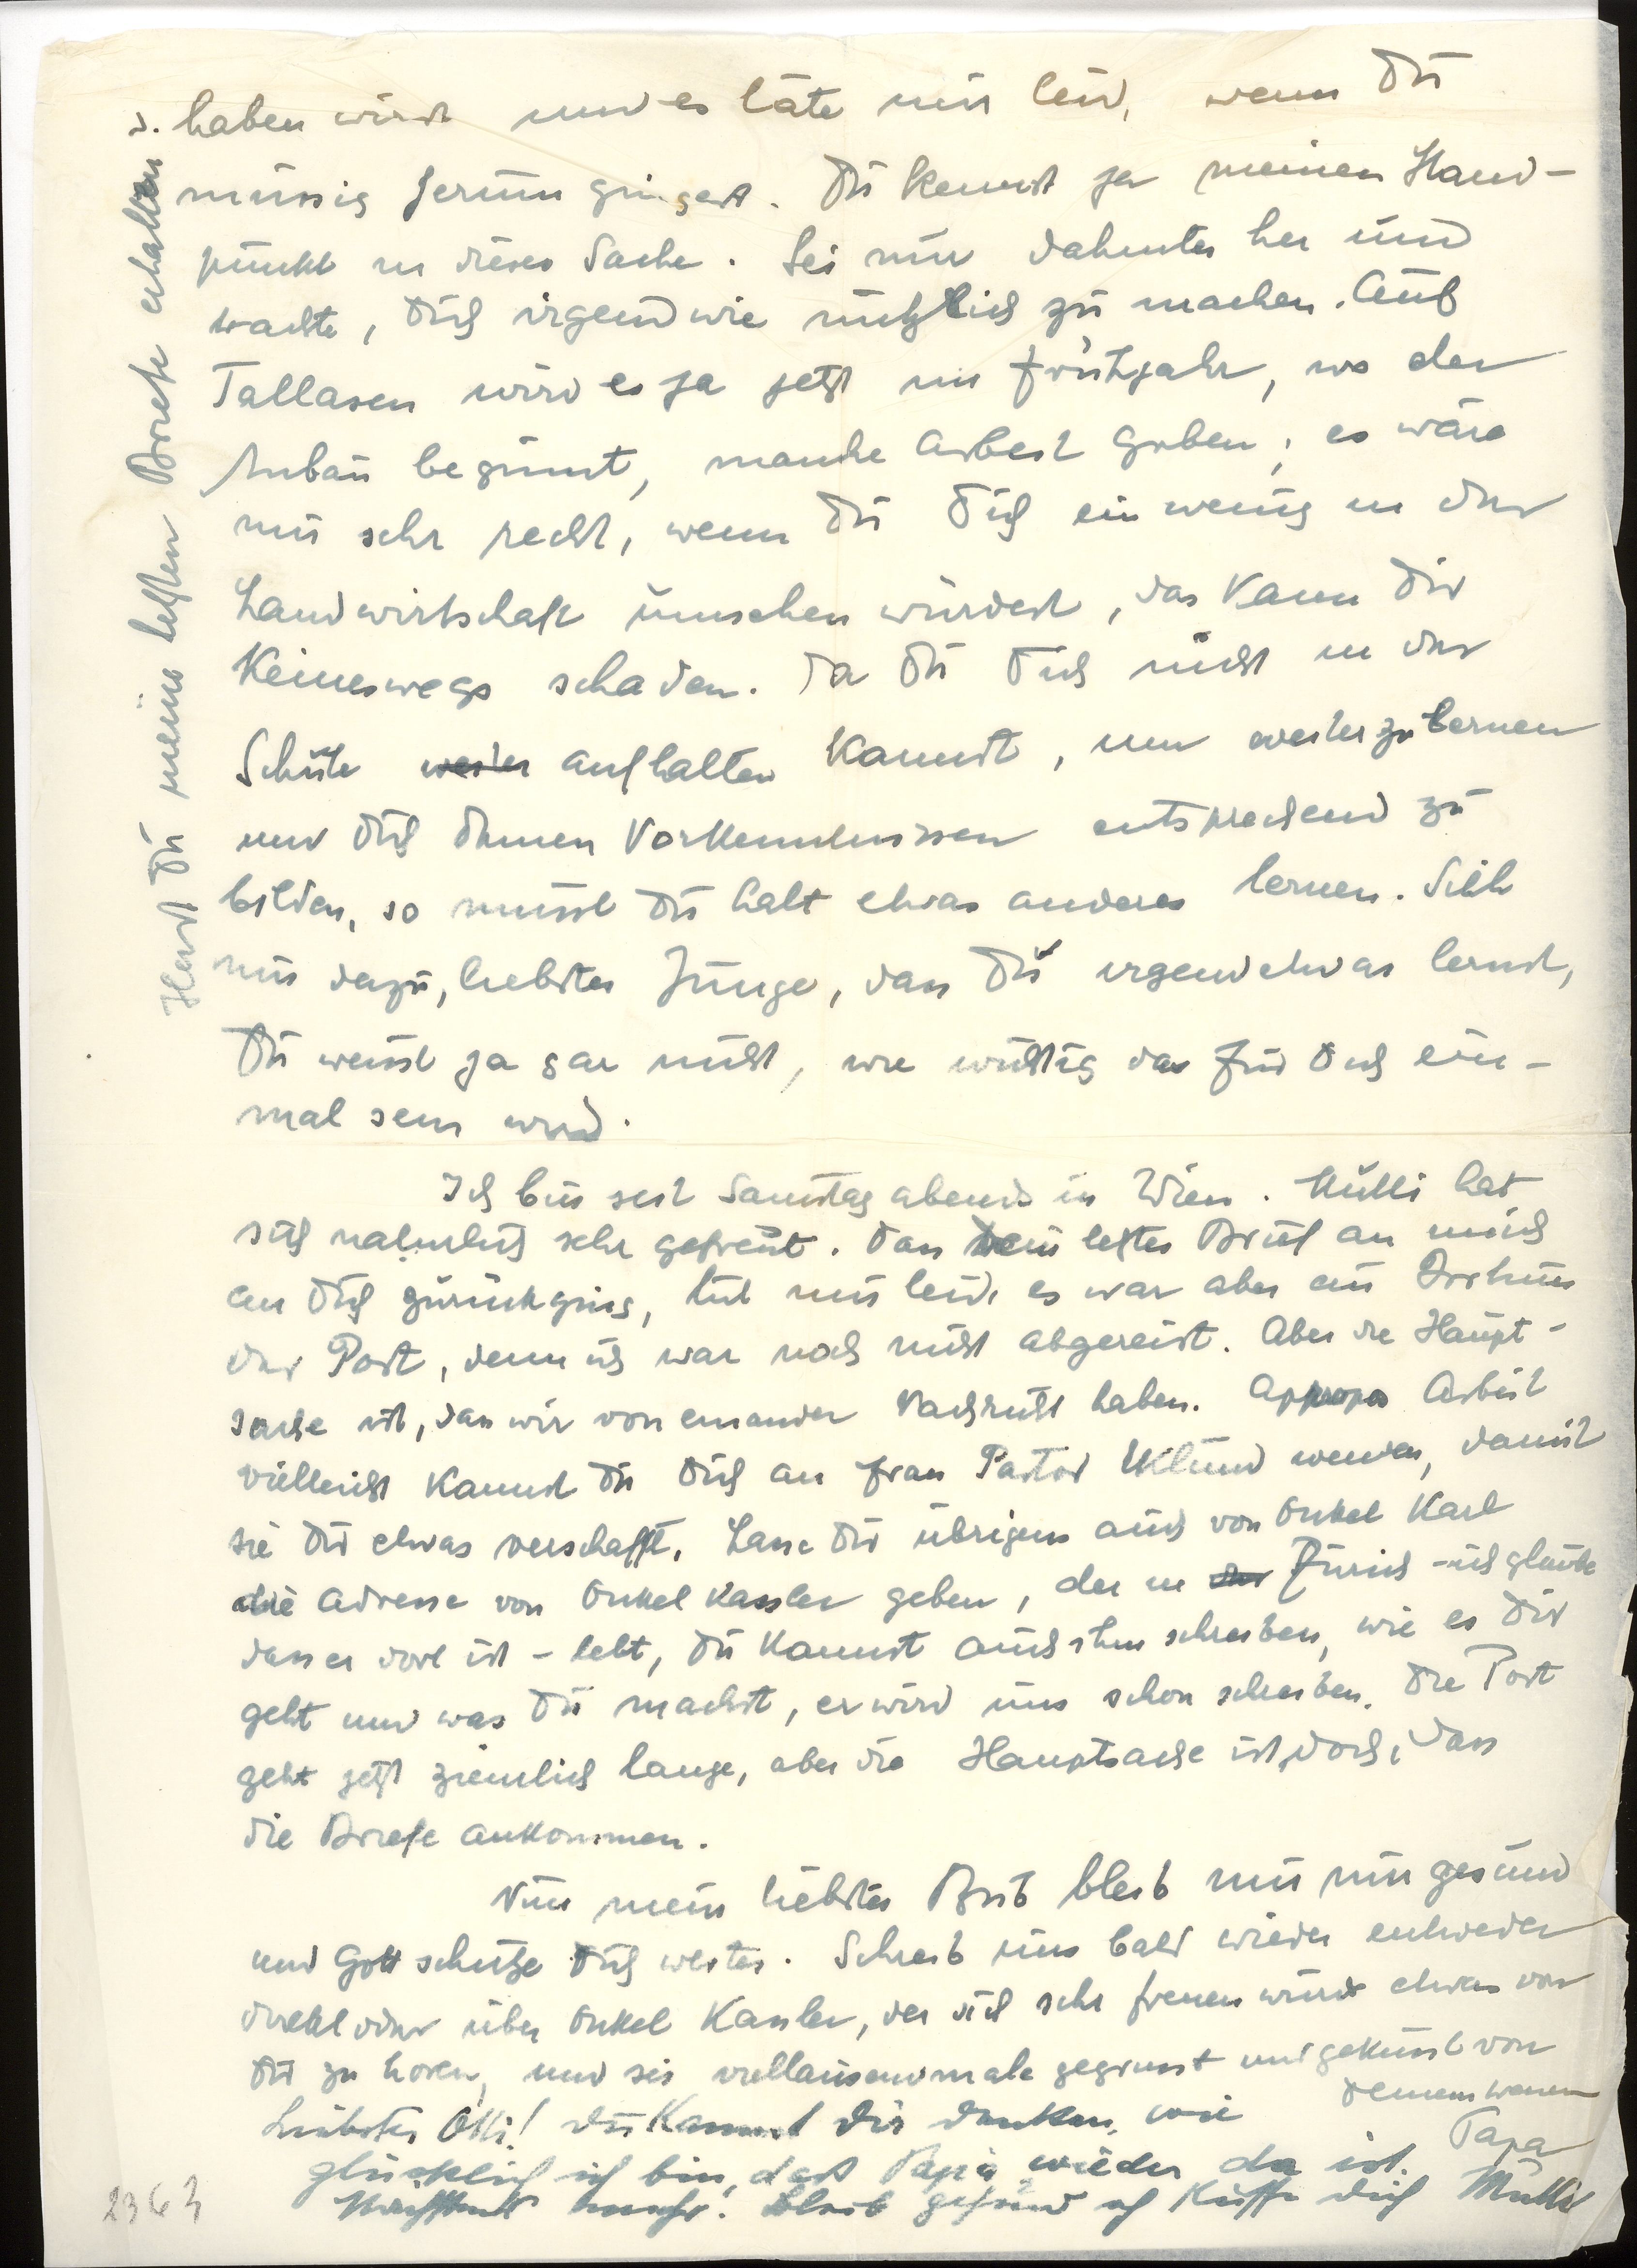 haben wirst und es täte mir leid, wenn Du
müssig herum gingest. Du kennst ja meinen Stand-
punkt in dieser Sache. Sei nur dahinter her und
trachte, Dich irgendwie nützlich zu machen. Auf
Tallasen wird es ja jetzt im Frühjahr, wo der
Anbau beginnt, manche Arbeit geben, es wäre
mir sehr recht, wenn Du Dich ein wenig in der
Landwirtschaft umsehen würdest, das kann Dir
keineswegs schaden. Da Du Dich nicht in der
Schule weiter aufhalten kannst, um weiterzulernen
und Dich Deinen Vorkenntnissen entsprechend zu
bilden, so musst Du halt etwas anderes lernen. Sieh
nur dazu, liebster Junge, dass Du irgendetwas lernst,
Du weisst ja gar nicht, wie wichtig das für Dich ein-
mal sein wird.
Ich bin seit Samstag abends in Wien. Mutti hat
sich natürlich sehr gefreut. Dass Dein letzter Brief an mich
an Dich zurückging, tut mir leid, es war aber ein Irrtum
der Post, denn ich war noch nicht abgereist. Aber die Haupt-
sache ist, dass wir voneinander Nachricht haben. Apropos Arbeit
vielleicht kannst Du Dich an Frau Pastor wenden, damit
sie Dir etwas verschafft. Lasse Dir übrigens auch von Onkel Karl
die Adresse von Onkel Kassler geben, der in der Zürich - ich glaube
dass er dort ist - lebt, Du kannst auch ihm schreiben, wie es Dir
geht und was Du machst, er wird uns schon schreiben. Die Post
geht jetzt ziemlich lange, aber die Hauptsache ist doch, dass
die Briefe ankommen.
Nun mein liebster Bub bleib mir nur gesund
und Gott schütze Dich weiter. Schreib uns bald wieder entweder
direkt oder über Onkel Kassler, der sich sehr freuen würde etwas von
Dir zu hören, und sei vieltausendmale gegrüsst und geküsst von
Deinem
Papa
Liebster Otti! Du kannst dir denken, wie
glücklich ich bin, dass Papa wieder da ist.
Nächstens mehr. Bleib gesund ich küsse dich Mutti
Hast Du meine letzten Briefe erhalten
2363